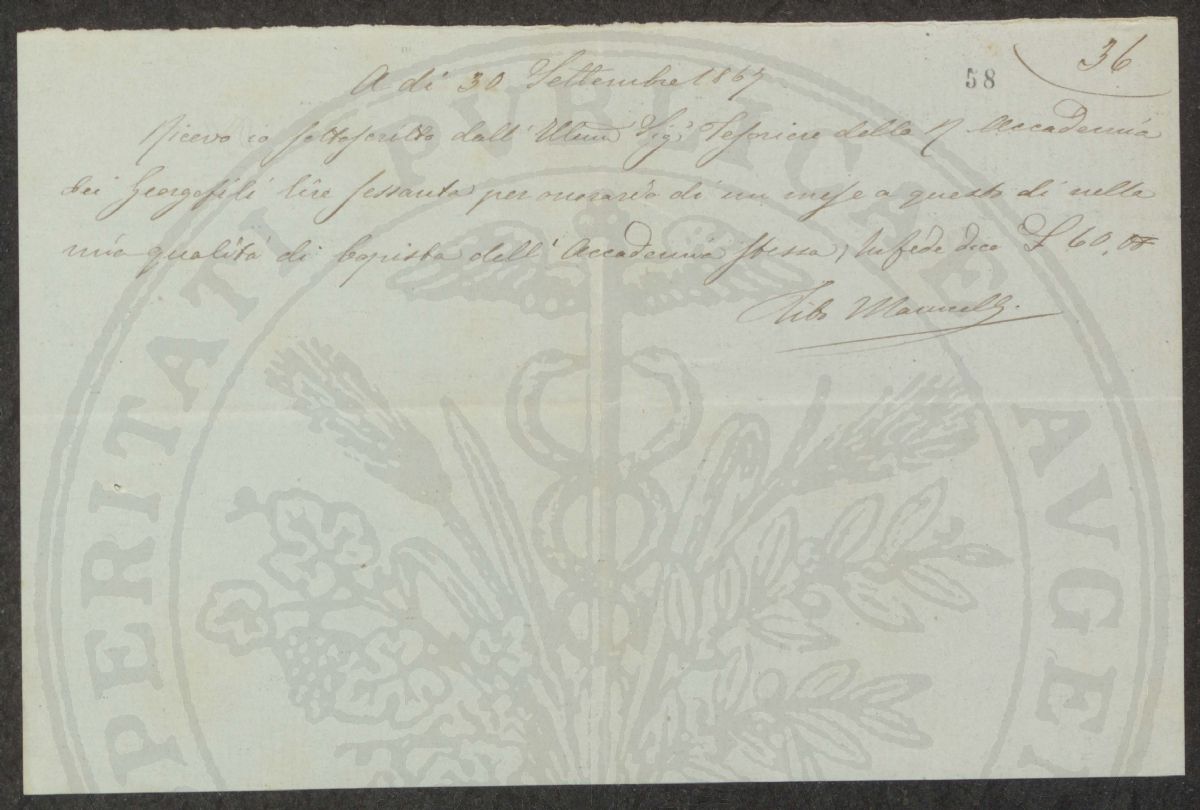 36
58
A dì 30 Settembre 1867
Ricevo io sottoscritto dall' Illmo Sigr Tesoriere della R Accademia
dei Georgofili lire sessanta per onorario di un mese a questo dì nella
mia qualità di Copista dell' Accademia stessa, In fede dico £ 60,00
Tito
PROSPERITATI PUBLICAE AUGENDAE